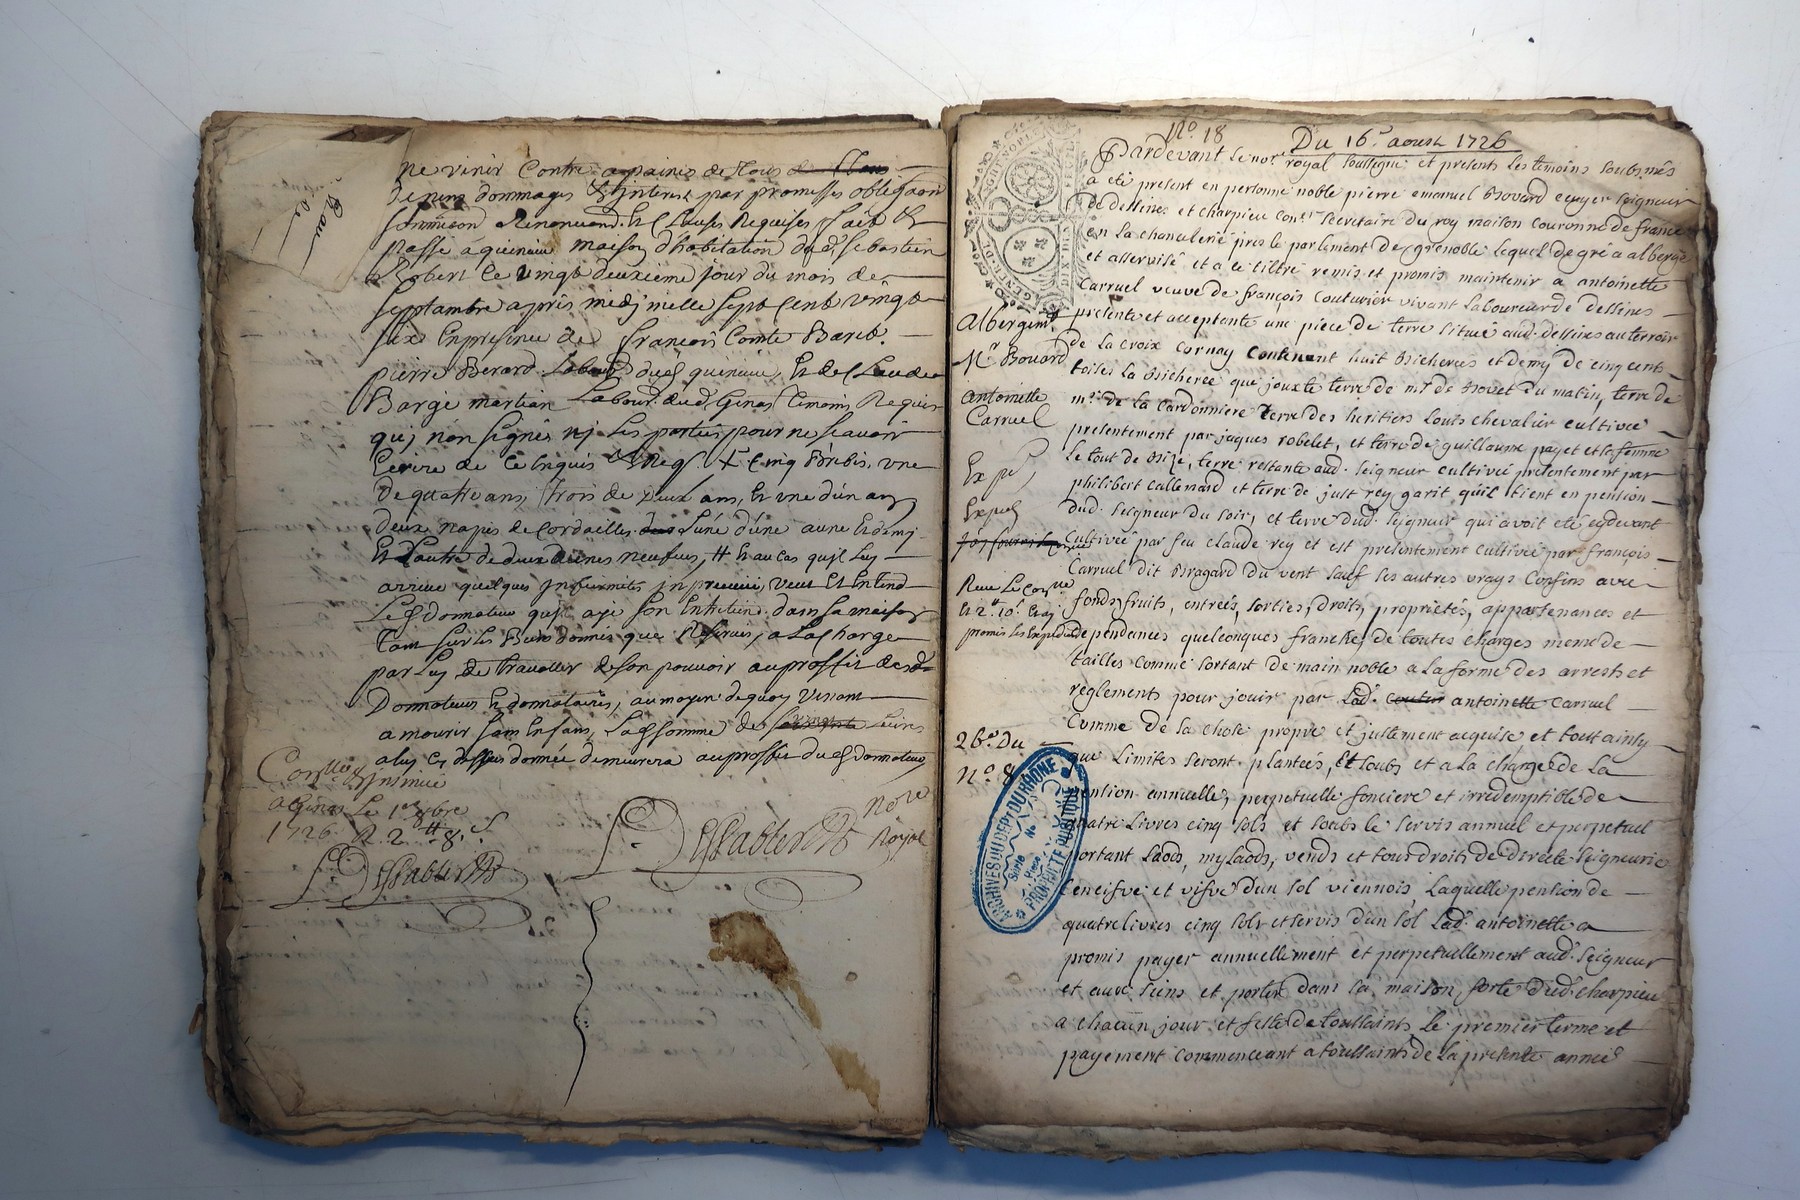 ne venir Contre a paines de tous
depens dommages & interest par promesses obligaon
soumission Renonciaond. Et Clauses Requises fait &
passé a quenieu maison d'habitation dud. sebastien
Robert Le vingt deuxieme jour du mois de
septambre apres midj mille sept Cent vingt
six En presence de francois Comte Barit.
pierre Berard Labour dud quenieu, Et de Claude
Barge martian Labour. dud Genas temoins Requis
quj n'on signés nj Les parties pour ne scavoir
Ecrire de Ce Enquis & Req. + Cinq Brebis, une
de quatre ans, trois de deux ans, Et une d'un an,
deux nappes de Cordailles L'une d'une aune Et demj
Et L'autre de deux aunes neufves, # Et au cas qu'jl Luy
arrive quelques jnfirmités jnpreveue, veut Et Entend
Led donateur qu'jl aye son Entretien dans sa maison
tant sur Les Biens donnés que Reservés, a La Charge
par Luy de travailler de son pouvoir au proffit desd
Donnateurs Et donnataires, au moyen de quoy venant
a mourir sans Enfans, Lad somme de
a luy cy dessus donnée demeurera au proffit dud donnateur
Con.llé & jnsinué
a Genas Le 1er 8bre
1726. R. 2 # 8 s
Nore
Royal
No. 18
Du 16e. aoust 1726
Pardevant le not.e royal soussigné et presents les temoins soubsnés
a eté present en personne noble pierre emanuel Bovard ecuyer seigneur
de dessines et charpieu con.er secretaire du roy maison couronne de france
en la chancelerie pres le parlement de grenoble lequel de gré a albergé
et asservisé et a ce tiltre remis et promis maintenir a antoinette
Carruel veuve de françois couturier vivant laboureur de dessines
presente et acceptante une piece de terre situee aud. dessines au terroir
de la croix cornay contenant huit bicherees et demy de cinq cent
toises la bicheree que jouxte terre de mr. de bovet du matin, terre de
mr. de la cardonniere terre des heritiers louis chevalier cultivee
presentement par jaques robelet, et terre de guillaume payet et sa femme
le tout de bize, terre restante aud. seigneur cultivee presentement par
philibert callemard et terre de just rey garit qu'il tient en pension
dud. seigneur du soir, et terre dud. seigneur qui avoit eté cydevant
cultivee par feu claude rey et est presentement cultivee par françois
Carruel dit Bragard du vent sauf ses autres vrays confins avec
fonds, fruits, entrées, sorties, droits, proprietés, appartenances et
dependances quelconques franche de toutes charges meme de
tailles comme sortant de main noble a la forme des arrests et
reglements pour jouir par lad. antoinette carruel
comme de sa chose propre et justement acquise et tout ainsy
que limites seront plantées, et soubs et a la charge de la
pention annuelle, perpetuelle fonciere et irredemptible de
quatre livres cinq sols et soubs le servis annuel et perpetuel
portant laods, mylaods, vends et tous droits de directe seigneurie
censive et vifve d'un sol viennois, laquelle pention de
quatre livres cinq sols et servis d'un sol lad. antoinette a
promis payer annuellement et perpetuellement aud. seigneur
et aux siens et porter dans sa maison forte dud. charpieu
a chacun jour et feste de toussaints le premier terme et
payement commenceant a toussaints de la presente année
Albergem.t
Mr Bovard
antoinette
Carruel
Exp.é
Exp.é
26e. Du
No. 8
GREN
DIX DEN
ARCHIVES DU DEPT DU RHONE
Série
No
Pièce
PROPRIÉTÉ PUBLIQUE